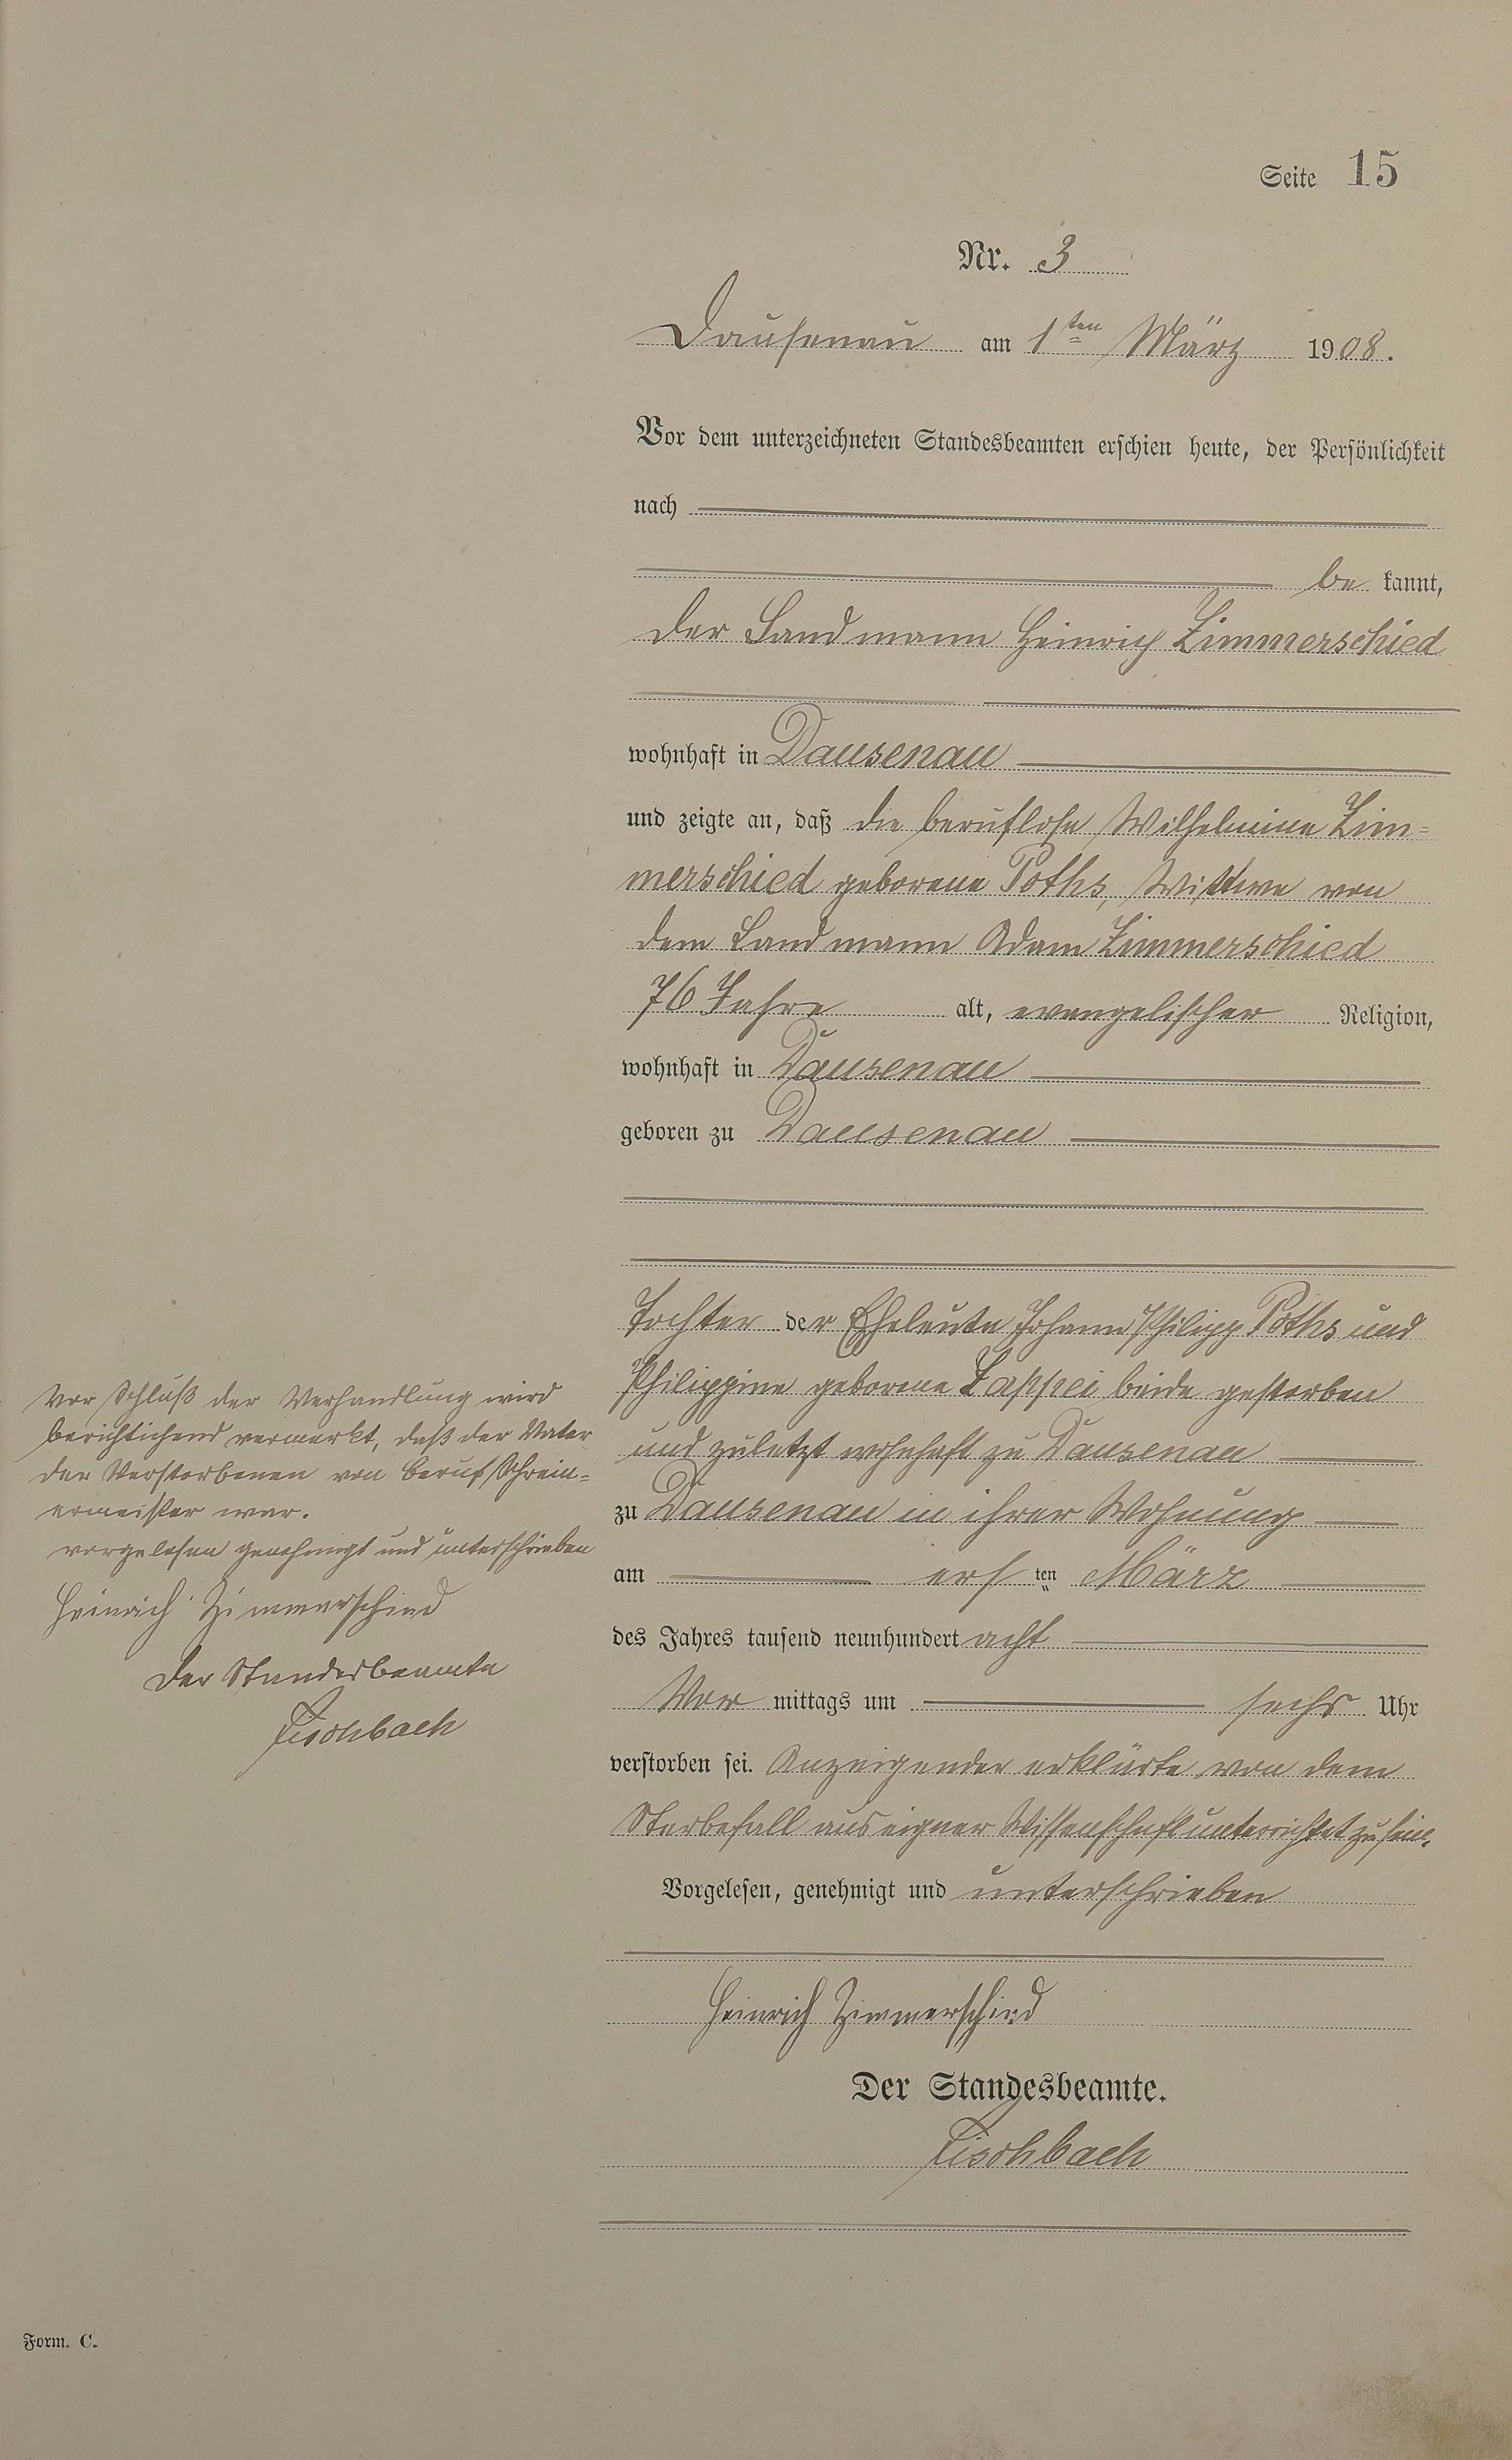 Seite 15
Nr. 3
Dausenau am 1ten März 1908.
Vor dem unterzeichneten Standesbeamten erschien heute, der Persönlichkeit
nach
be kannt,
der Landmann Heinrich Zimmerschied
wohnhaft in Dausenau
und zeigte an, daß die beruflose Wilhelmine Zim=
merschied geborene Poths, Wittwe von
dem Landmann Adam Zimmerschied
76 Jahre alt, evangelischer Religion,
wohnhaft in Dausenau
geboren zu Dausenau
Tochter der Eheleute Johann Philipp Poths und
Philippine geborene Lappei beide gestorben
und zuletzt wohnhaft zu Dausenau
zu Dausenau in ihrer Wohnung
am ersten März
des Jahres tausend neunhundert acht
Vor mittags um sechs Uhr
verstorben sei. Anzeigender erklärte von dem
Sterbefall aus eigner Wissenschaft unterrichtet zu sein.
Vorgelesen, genehmigt und unterschrieben
Heinrich Zimmerschied
Der Standesbeamte.
Fischbach
Vor Schluß der Verhandlung wird
berichtichend vermerkt, daß der Vater
der Verstorbenen von Beruf Schrein=
ermeister war.
vorgelesen genehmigt und unterschrieben
Heinrich Zimmerschied
Der Standesbeamte
Fischbach
Form. C.